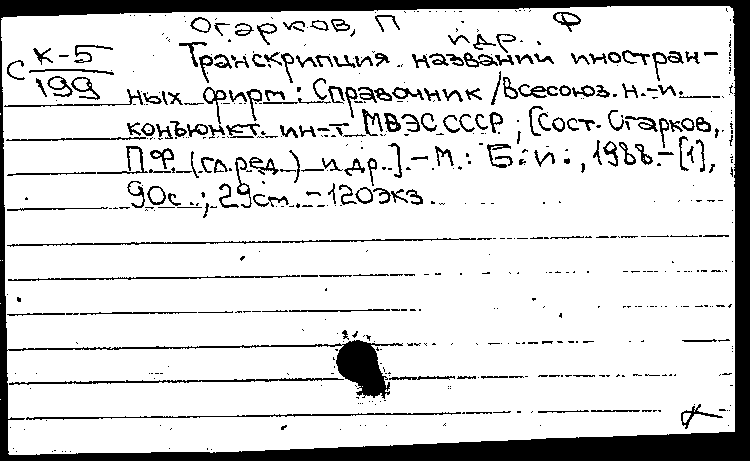 Огарков, П Ф
и др.
С К-5
199
Транскрипция названий иностран-
ных фирм: Справочник / Всесоюз. н.-и.
конъюнкт. ин-т МВЭС СССР; [Сост. Огарков,
П.Ф. (гл. ред.) и др.]. - М.: Б. и., 1988. - [1],
90с.; 29см. - 120экз.